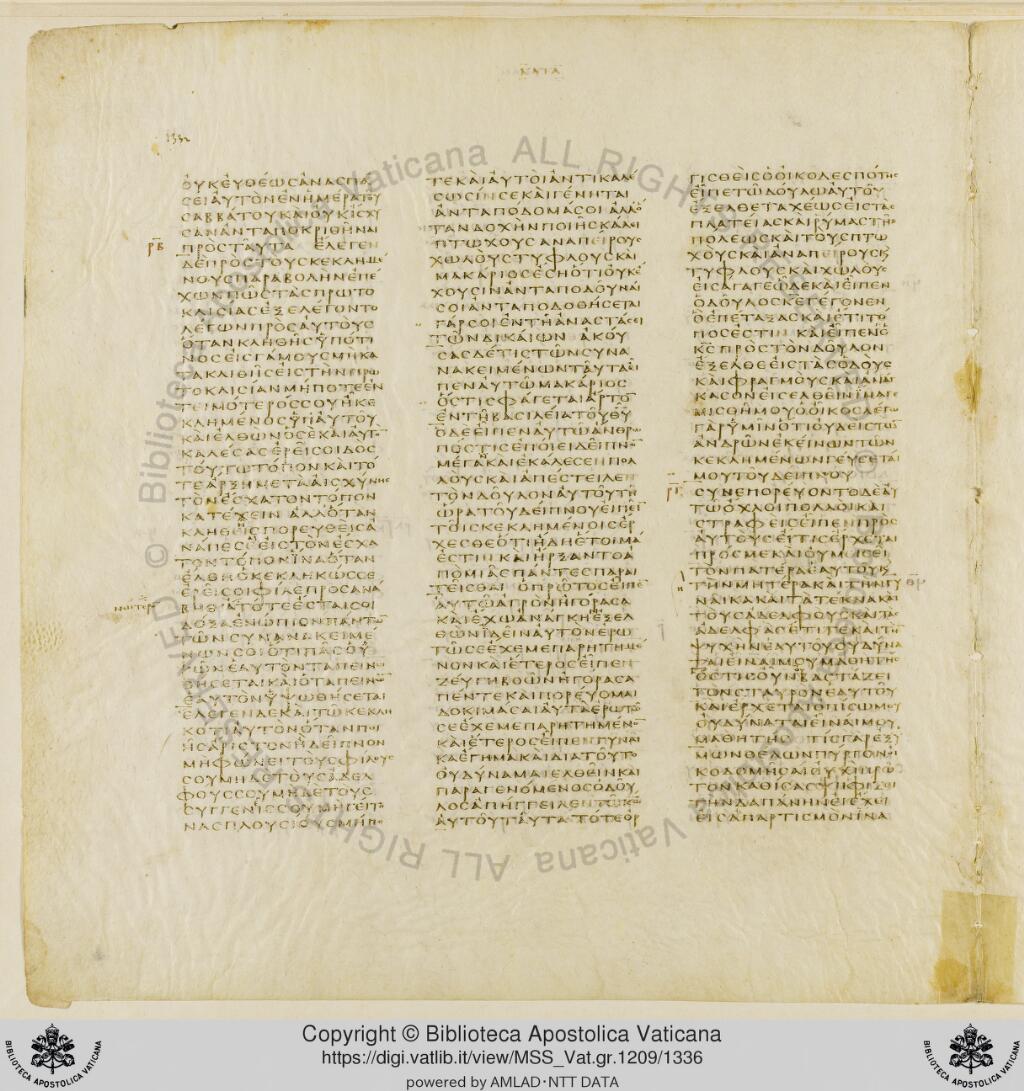 ΚΑΤΑ
1332
ΟΥΚ ΕΥΘΕΩΣ ΑΝΑΣΠΑ
ΣΕΙ ΑΥΤΟΝ ΕΝ ΗΜΕΡΑ ΤΟΥ
ΣΑΒΒΑΤΟΥ ΚΑΙ ΟΥΚ ΙΣΧΥ
ΣΑΝ ΑΝΤΑΠΟΚΡΙΘΗΝΑΙ
ΡΒ
ΠΡΟΣ ΤΑΥΤΑ ΕΛΕΓΕΝ
ΔΕ ΠΡΟΣ ΤΟΥΣ ΚΕΚΛΗΜΕ
ΝΟΥΣ ΠΑΡΑΒΟΛΗΝ ΕΠΕ
ΧΩΝ ΠΩΣ ΤΑΣ ΠΡΩΤΟ
ΚΛΙΣΙΑΣ ΕΞΕΛΕΓΟΝΤΟ
ΛΕΓΩΝ ΠΡΟΣ ΑΥΤΟΥΣ
ΟΤΑΝ ΚΛΗΘΗΣ ΥΠΟ ΤΙ
ΝΟΣ ΕΙΣ ΓΑΜΟΥΣ ΜΗ ΚΑ
ΤΑΚΛΙΘΗΣ ΕΙΣ ΤΗΝ ΠΡΩ
ΤΟΚΛΙΣΙΑΝ ΜΗΠΟΤΕ ΕΝ
ΤΕΙΜΟΤΕΡΟΣ ΣΟΥ Η ΚΕ
ΚΛΗΜΕΝΟΣ ΥΠ ΑΥΤΟΥ
ΚΑΙ ΕΛΘΩΝ Ο ΣΕ ΚΑΙ ΑΥΤΟ̄
ΚΑΛΕΣΑΣ ΕΡΕΙ ΣΟΙ ΔΟΣ
ΤΟΥΤΩ ΤΟΠΟΝ ΚΑΙ ΤΟ
ΤΕ ΑΡΞΗ ΜΕΤΑ ΑΙΣΧΥΝΗΣ
ΤΟΝ ΕΣΧΑΤΟΝ ΤΟΠΟΝ
ΚΑΤΕΧΕΙΝ ΑΛΛ ΟΤΑΝ
ΚΛΗΘΗΣ ΠΟΡΕΥΘΕΙΣ Α
ΝΑΠΕΣΕ ΕΙΣ ΤΟΝ ΕΣΧΑ
ΤΟΝ ΤΟΠΟΝ ΙΝΑ ΟΤΑΝ
ΕΛΘΗ Ο ΚΕΚΛΗΚΩΣ ΣΕ
ΕΡΕΙ ΣΟΙ ΦΙΛΕ ΠΡΟΣΑΝΑ
ΒΗΘΙ ΑΝΩΤΕΡΟΝ ΤΟΤΕ ΕΣΤΑΙ ΣΟΙ
ΔΟΞΑ ΕΝΩΠΙΟΝ ΠΑΝΤΩ̄
ΤΩΝ ΣΥΝΑΝΑΚΕΙΜΕ
ΝΩΝ ΣΟΙ ΟΤΙ ΠΑΣ Ο Υ
ΨΩΝ ΕΑΥΤΟΝ ΤΑΠΕΙΝΩ
ΘΗΣΕΤΑΙ ΚΑΙ Ο ΤΑΠΕΙΝΩ̄
ΕΑΥΤΟΝ ΥΨΩΘΗΣΕΤΑΙ
ΕΛΕΓΕΝ ΔΕ ΚΑΙ ΤΩ ΚΕΚΛΗ
ΚΟΤΙ ΑΥΤΟΝ ΟΤΑΝ ΠΟΙ
ΗΣ ΑΡΙΣΤΟΝ Η ΔΕΙΠΝΟΝ
ΜΗ ΦΩΝΕΙ ΤΟΥΣ ΦΙΛΟΥΣ
ΣΟΥ ΜΗΔΕ ΤΟΥΣ ΑΔΕΛ
ΦΟΥΣ ΣΟΥ ΜΗΔΕ ΤΟΥΣ
ΣΥΓΓΕΝΕΙΣ ΣΟΥ ΜΗΔΕ ΓΕΙΤΟ
ΝΑΣ ΠΛΟΥΣΙΟΥΣ ΜΗΠΟ
ΤΕ ΚΑΙ ΑΥΤΟΙ ΑΝΤΙΚΑΛΕ
ΣΩΣΙΝ ΣΕ ΚΑΙ ΓΕΝΗΤΑΙ
ΑΝΤΑΠΟΔΟΜΑ ΣΟΙ ΑΛΛ Ο
ΤΑΝ ΔΟΧΗΝ ΠΟΙΗΣ ΚΑΛΕΙ
ΠΤΩΧΟΥΣ ΑΝΑΠΕΙΡΟΥΣ
ΧΩΛΟΥΣ ΤΥΦΛΟΥΣ ΚΑΙ
ΜΑΚΑΡΙΟΣ ΕΣΗ ΟΤΙ ΟΥΚ Ε
ΧΟΥΣΙΝ ΑΝΤΑΠΟΔΟΥΝΑΙ
ΣΟΙ ΑΝΤΑΠΟΔΟΘΗΣΕΤΑΙ
ΓΑΡ ΣΟΙ ΕΝ ΤΗ ΑΝΑΣΤΑΣΕΙ
ΤΩΝ ΔΙΚΑΙΩΝ ΑΚΟΥ
ΣΑΣ ΔΕ ΤΙΣ ΤΩΝ ΣΥΝΑ
ΝΑΚΕΙΜΕΝΩΝ ΤΑΥΤΑ ΕΙ
ΠΕΝ ΑΥΤΩ ΜΑΚΑΡΙΟΣ
ΟΣΤΙΣ ΦΑΓΕΤΑΙ ΑΡΤΟ̄
ΕΝ ΤΗ ΒΑΣΙΛΕΙΑ ΤΟΥ ΘΥ
Ο ΔΕ ΕΙΠΕΝ ΑΥΤΩ ΑΝΘΡΩ
ΠΟΣ ΤΙΣ ΕΠΟΙΕΙ ΔΕΙΠΝΟ̄
ΜΕΓΑ ΚΑΙ ΕΚΑΛΕΣΕΝ ΠΟΛ
ΛΟΥΣ ΚΑΙ ΑΠΕΣΤΕΙΛΕΝ
ΤΟΝ ΔΟΥΛΟΝ ΑΥΤΟΥ ΤΗ
ΩΡΑ ΤΟΥ ΔΕΙΠΝΟΥ ΕΙΠΕῙ
ΤΟΙΣ ΚΕΚΛΗΜΕΝΟΙΣ ΕΡ
ΧΕΣΘΕ ΟΤΙ ΗΔΗ ΕΤΟΙΜΑ
ΕΣΤΙΝ ΚΑΙ ΗΡΞΑΝΤΟ Α
ΠΟ ΜΙΑΣ ΠΑΝΤΕΣ ΠΑΡΑΙ
ΤΕΙΣΘΑΙ Ο ΠΡΩΤΟΣ ΕΙΠΕ̄
ΑΥΤΩ ΑΓΡΟΝ ΗΓΟΡΑΣΑ
ΚΑΙ ΕΧΩ ΑΝΑΓΚΗ ΕΞΕΛ
ΘΩΝ ΙΔΕΙΝ ΑΥΤΟΝ ΕΡΩ
ΤΩ ΣΕ ΕΧΕ ΜΕ ΠΑΡΗΤΗΜΕ
ΝΟΝ ΚΑΙ ΕΤΕΡΟΣ ΕΙΠΕΝ
ΖΕΥΓΗ ΒΟΩΝ ΗΓΟΡΑΣΑ
ΠΕΝΤΕ ΚΑΙ ΠΟΡΕΥΟΜΑΙ
ΔΟΚΙΜΑΣΑΙ ΑΥΤΑ ΕΡΩΤΩ
ΣΕ ΕΧΕ ΜΕ ΠΑΡΗΤΗΜΕΝΟ̄
ΚΑΙ ΕΤΕΡΟΣ ΕΙΠΕΝ ΓΥΝΑΙ
ΚΑ ΕΓΗΜΑ ΚΑΙ ΔΙΑ ΤΟΥΤΟ
ΟΥ ΔΥΝΑΜΑΙ ΕΛΘΕΙΝ ΚΑΙ
ΠΑΡΑΓΕΝΟΜΕΝΟΣ Ο ΔΟΥ
ΛΟΣ ΑΠΗΓΓΕΙΛΕΝ ΤΩ ΚΩ
ΑΥΤΟΥ ΤΑΥΤΑ ΤΟΤΕ ΟΡ
ΓΙΣΘΕΙΣ Ο ΟΙΚΟΔΕΣΠΟΤΗΣ
ΕΙΠΕ ΤΩ ΔΟΥΛΩ ΑΥΤΟΥ
ΕΞΕΛΘΕ ΤΑΧΕΩΣ ΕΙΣ ΤΑΣ
ΠΛΑΤΕΙΑΣ ΚΑΙ ΡΥΜΑΣ ΤΗΣ
ΠΟΛΕΩΣ ΚΑΙ ΤΟΥΣ ΠΤΩ
ΧΟΥΣ ΚΑΙ ΑΝΑΠΕΙΡΟΥΣ Κ
ΤΥΦΛΟΥΣ ΚΑΙ ΧΩΛΟΥΣ
ΕΙΣΑΓΑΓΕ ΩΔΕ ΚΑΙ ΕΙΠΕΝ
Ο ΔΟΥΛΟΣ ΚΕ ΓΕΓΟΝΕΝ
Ο ΕΠΕΤΑΞΑΣ ΚΑΙ ΕΤΙ ΤΟ
ΠΟΣ ΕΣΤΙΝ ΚΑΙ ΕΙΠΕΝ Ο
ΚΣ ΠΡΟΣ ΤΟΝ ΔΟΥΛΟΝ
ΕΞΕΛΘΕ ΕΙΣ ΤΑΣ ΟΔΟΥΣ
ΚΑΙ ΦΡΑΓΜΟΥΣ ΚΑΙ ΑΝΑΓ
ΚΑΣΟΝ ΕΙΣΕΛΘΕΙΝ ΙΝΑ ΓΕ
ΜΙΣΘΗ ΜΟΥ Ο ΟΙΚΟΣ ΛΕΓΩ
ΓΑΡ ΥΜΙΝ ΟΤΙ ΟΥΔΕΙΣ ΤΩ̄
ΑΝΔΡΩΝ ΕΚΕΙΝΩΝ ΤΩΝ
ΚΕΚΛΗΜΕΝΩΝ ΓΕΥΣΕΤΑΙ
ΜΟΥ ΤΟΥ ΔΕΙΠΝΟΥ
ΡΓ
ΣΥΝΕΠΟΡΕΥΟΝΤΟ ΔΕ ΑΥ
ΤΩ ΟΧΛΟΙ ΠΟΛΛΟΙ ΚΑΙ
ΣΤΡΑΦΕΙΣ ΕΙΠΕΝ ΠΡΟΣ
ΑΥΤΟΥΣ ΕΙ ΤΙΣ ΕΡΧΕΤΑΙ
ΠΡΟΣ ΜΕ ΚΑΙ ΟΥ ΜΙΣΕΙ
ΤΟΝ ΠΑΤΕΡΑ ΕΑΥΤΟΥ Κ
ΤΗΝ ΜΗΤΕΡΑ ΚΑΙ ΤΗΝ ΓΥ
ΝΑΙΚΑ ΚΑΙ ΤΑ ΤΕΚΝΑ ΚΑΙ
ΤΟΥΣ ΑΔΕΛΦΟΥΣ ΚΑΙ ΤΑΣ
ΑΔΕΛΦΑΣ ΕΤΙ ΤΕ ΚΑΙ ΤΗ̄
ΨΥΧΗΝ ΕΑΥΤΟΥ ΟΥ ΔΥΝΑ
ΤΑΙ ΕΙΝΑΙ ΜΟΥ ΜΑΘΗΤΗΣ
ΟΣΤΙΣ ΟΥΝ ΒΑΣΤΑΖΕΙ
ΤΟΝ ΣΤΑΥΡΟΝ ΕΑΥΤΟΥ
ΚΑΙ ΕΡΧΕΤΑΙ ΟΠΙΣΩ ΜΟΥ
ΟΥ ΔΥΝΑΤΑΙ ΕΙΝΑΙ ΜΟΥ
ΜΑΘΗΤΗΣ ΤΙΣ ΓΑΡ ΕΞ Υ
ΜΩΝ ΘΕΛΩΝ ΠΥΡΓΟΝ ΟΙ
ΚΟΔΟΜΗΣΑΙ ΟΥΧΙ ΠΡΩ
ΤΟΝ ΚΑΘΙΣΑΣ ΨΗΦΙΖΕΙ
ΤΗΝ ΔΑΠΑΝΗΝ ΕΙ ΕΧΕΙ
ΕΙΣ ΑΠΑΡΤΙΣΜΟΝ ΙΝΑ
© Biblioteca Apostolica Vaticana ALL RIGHTS RESERVED
Copyright © Biblioteca Apostolica Vaticana
https://digi.vatlib.it/view/MSS_Vat.gr.1209/1336
powered by AMLAD·NTT DATA
BIBLIOTECA APOSTOLICA VATICANA
BIBLIOTECA APOSTOLICA VATICANA